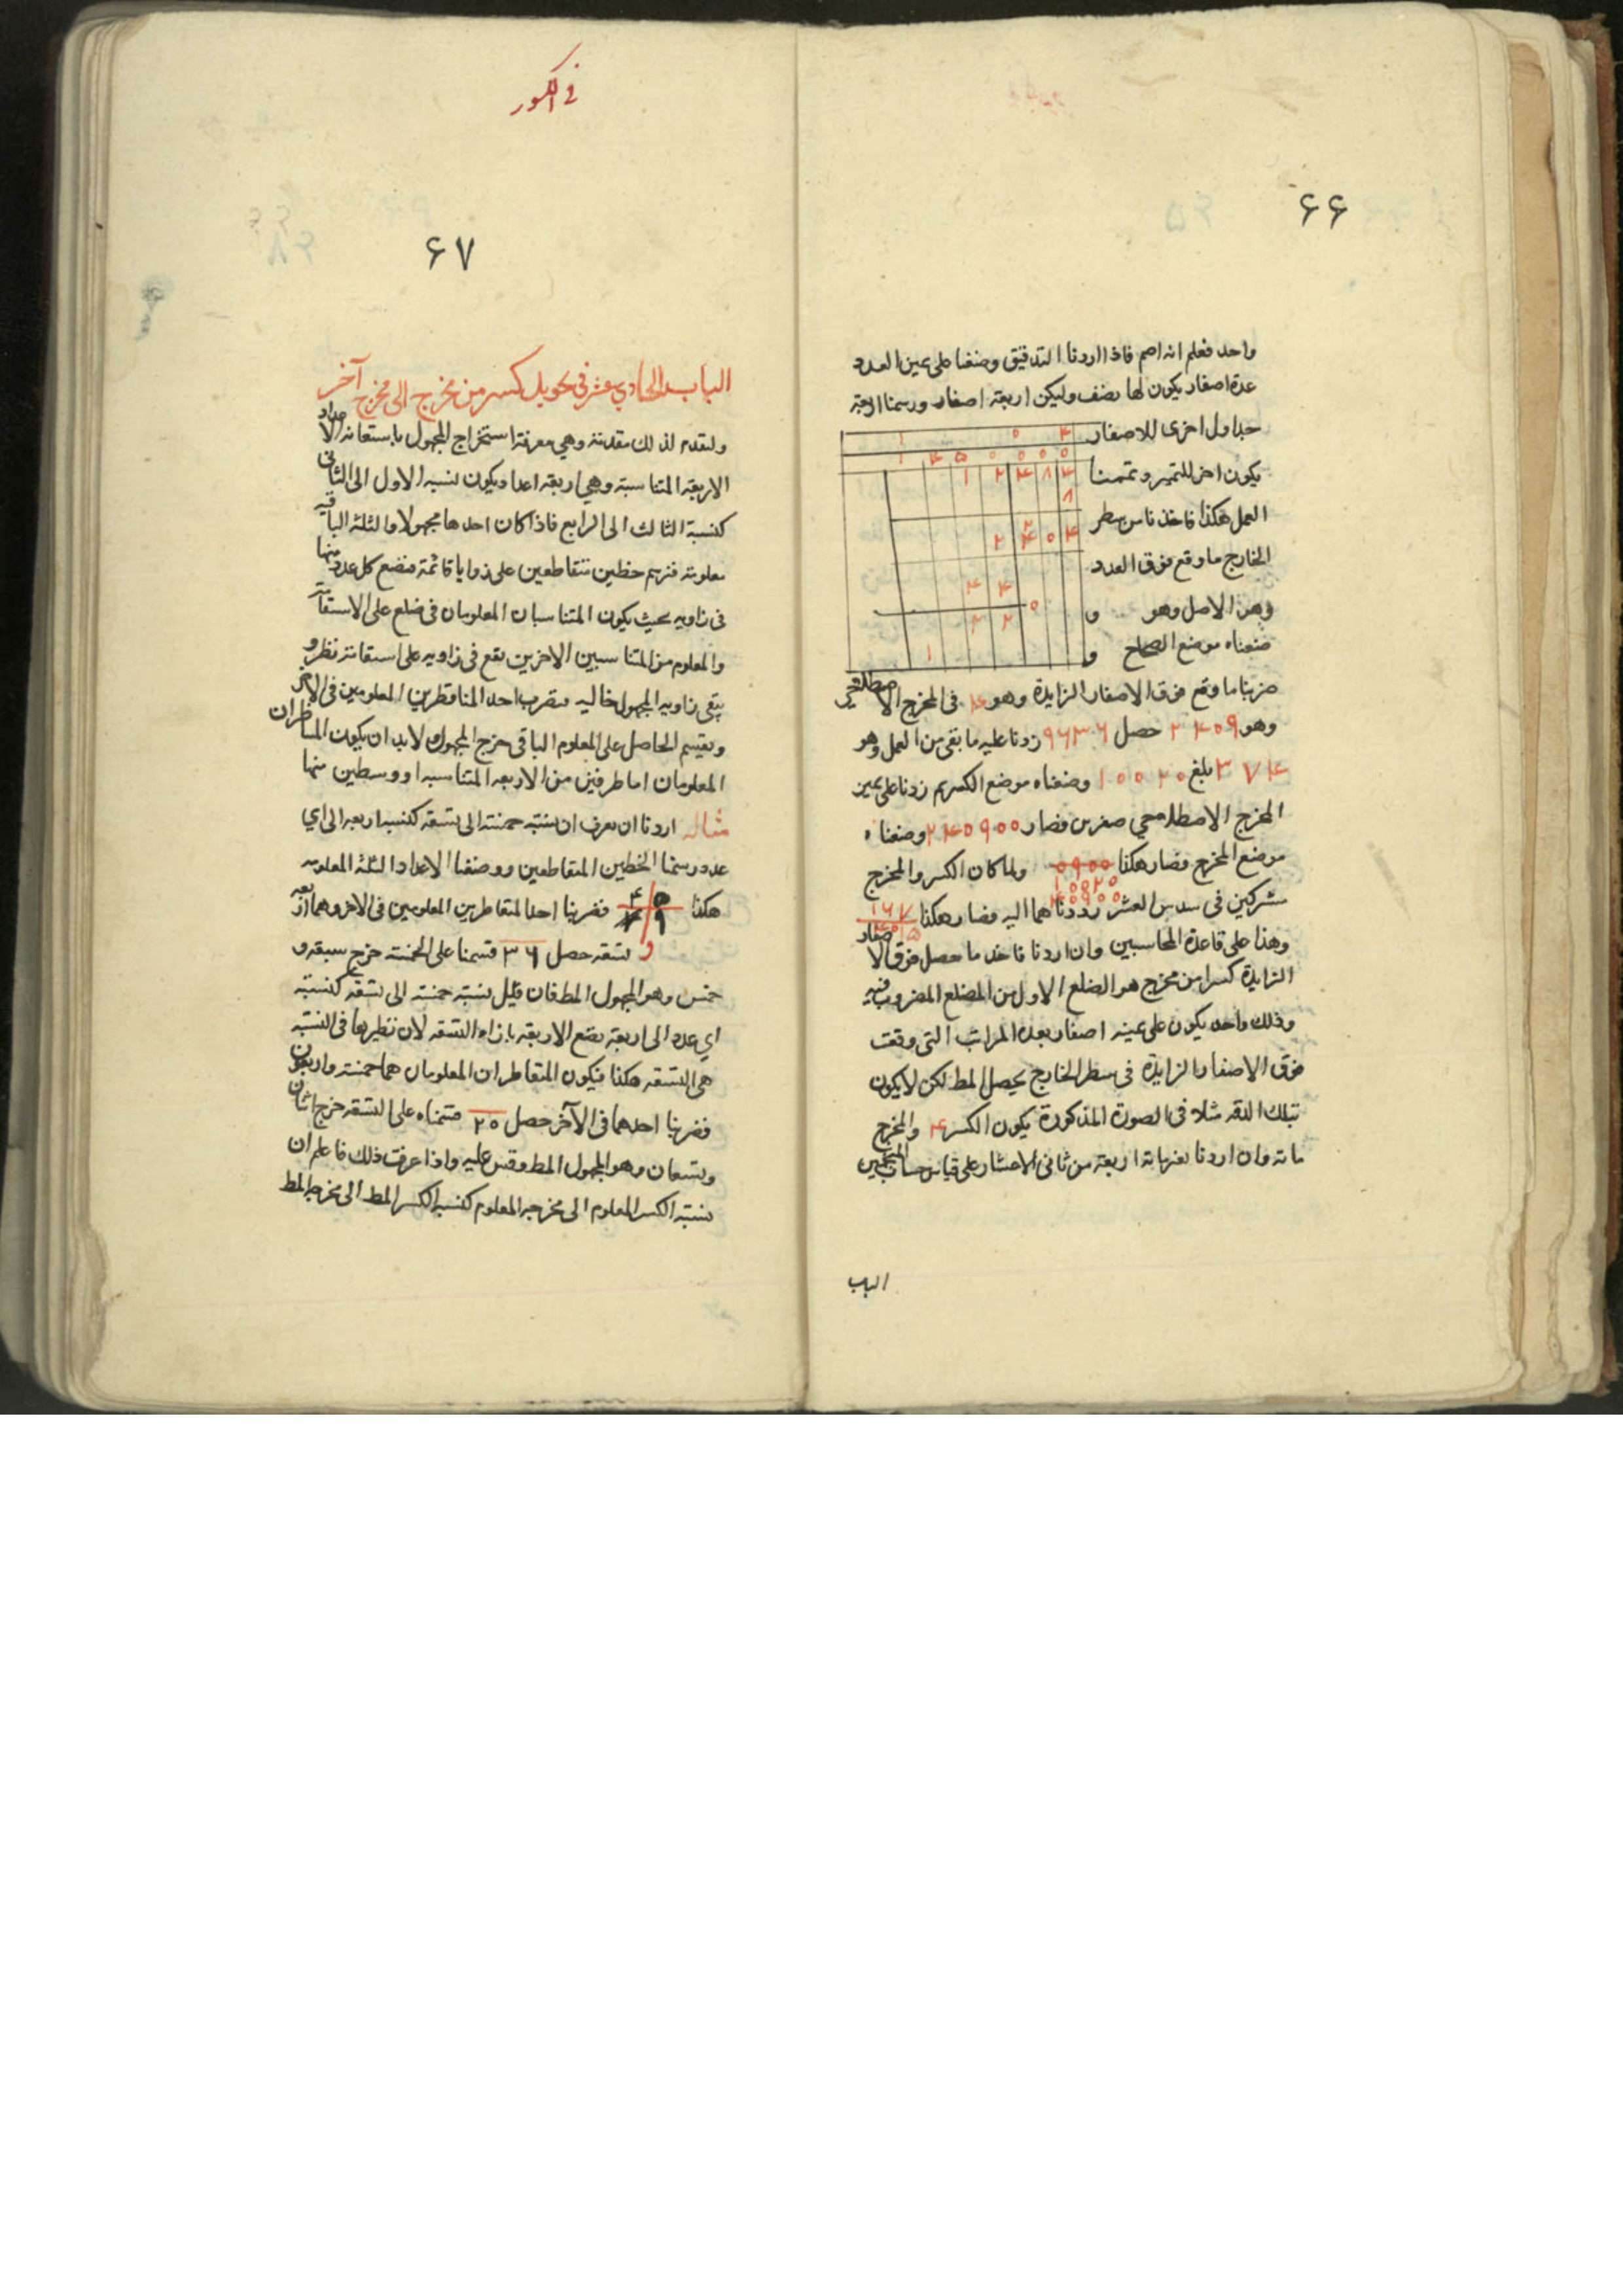 ۶۶
واحد فعلم انه اصم فاذا اردنا التدقيق وضعنا على يمين العدد
عدة اصفار يكون لها نصف وليكن اربعة اصفار ورسمنا اربعة
جداول اخرى للاصفار
يكون اخر للتميز وتممنا
العمل هكذا فاخذنا من سطر
الخارج ما وقع فوق العدد
وهو الاصل وهو
وضعناه موضع الصحاح و
ضربنا ما وقع فوق الاصفار الزايدة وهو ۴ فى المخرج الاصطلاحى
وهو ۲۴۰۹ حصل ۹۶۳۶ زدنا عليه ما بقى من العمل وهو
۳۷۴ بلغ ۱۰۰۲۰ وضعناه موضع الكسر ثم زدنا على يمين
المخرج الاصطلاحي صفرين فصار ۲۴۰۹۰۰ وضعناه
موضع المخرج فصار هكذا ولما كان الكسر والمخرج
مشتركين فى سدس العشر رددناهما اليه فصار هكذا ۱۶۷
وهذا على قاعدة المحاسبين وان اردنا فاخذ ما حصل فوق الاصفار
الزايدة كسرا من مخرج هو الضلع الاول من المضلع المضروب فيه
وذلك واحد يكون على يمينه اصفار بعدة المراتب التى وقعت
فوق الاصفار الزايدة فى سطر الخارج يحصل المط لكن لا يكون
بتلك الدقه مثلا فى الصورة المذكورة يكون الكسر ۴ والمخرج
مائة وان اردنا اربعة من ثانى الاعشار على قياس حساب المنجمين
الباب
فى الكسور
۶۷
الباب الحادي عشر فى تحويل كسر من مخرج الى مخرج آخر
ولنقدم لذلك مقدمة وهي معرفة استخراج المجهول باستعانة الاعداد
الاربعة المتناسبة وهي اربعة اعداد يكون نسبه الاول الى الثانى
كنسبة الثالث الى الرابع فاذا كان احدها مجهولا والثلثة الباقيه
معلومة فنرسم خطين متقاطعين على زوايا قائمة فنضع كل عدد منها
فى زاويه بحيث يكون المتناسبان المعلومان فى ضلع على الاستقامة
والمعلوم من المتناسبين الاخرين يقع فى زاويه على استقامة نظره و
يبقى زاويه المجهول خاليه فنضرب احد المتناظرين المعلومين فى الاخر
ونقسم الحاصل على المعلوم الباقى خرج المجهول ولابد ان يكون المتناظران
المعلومان اما طرفين من الاربعه المتناسبه او وسطين منها
مثاله اردنا ان نعرف ان نسبة خمسة الى تسعة كنسبه اربعه الى اي
عدد رسمنا الخطين المتقاطعين ووضعنا الاعداد الثلثة المعلومه
هكذا فضربنا احد المتناظرين المعلومين فى الاخر وهما اربعه
و تسعه حصل ۳۶ قسمنا على الخمسة خرج سبعه و
خمس وهو المجهول المط فان قيل نسبة خمسة الى تسعة كنسبة
اي عدد الى اربعة نضع الاربعه بازاء التسعة لان نظيرها فى النسبة
هى التسعه هكذا فيكون المتناظران المعلومان هما خمسة واربعه
فضربنا احدهما فى الآخر حصل ۲۰ قسمناه على التسعه خرج اثنان
وتسعان وهو المجهول المط وقس عليه واذا عرفت ذلك فاعلم ان
نسبة الكسر المعلوم الى مخرجه المعلوم كنسبه الكسر المط الى مخرجه المط